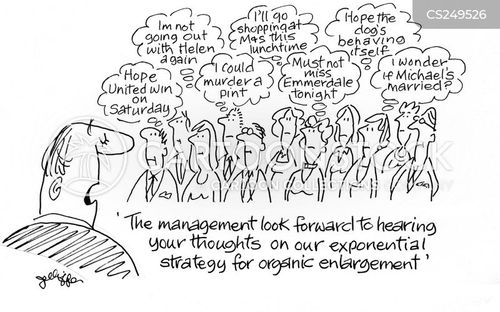 CS249526
I'm not
going out
with Helen
again
I'll go
shopping at
M&S this
lunchtime
Hope
the
dog's
behaving
itself
Hope
United win
on
Saturday
I could
murder a
pint
Must not
miss
Emmerdale
tonight
I wonder
if Michael's
married?
CARTOONSTOCK
CARTOON COLLECTIONS
'The management look forward to hearing
your thoughts on our exponential
strategy for organic enlargement'